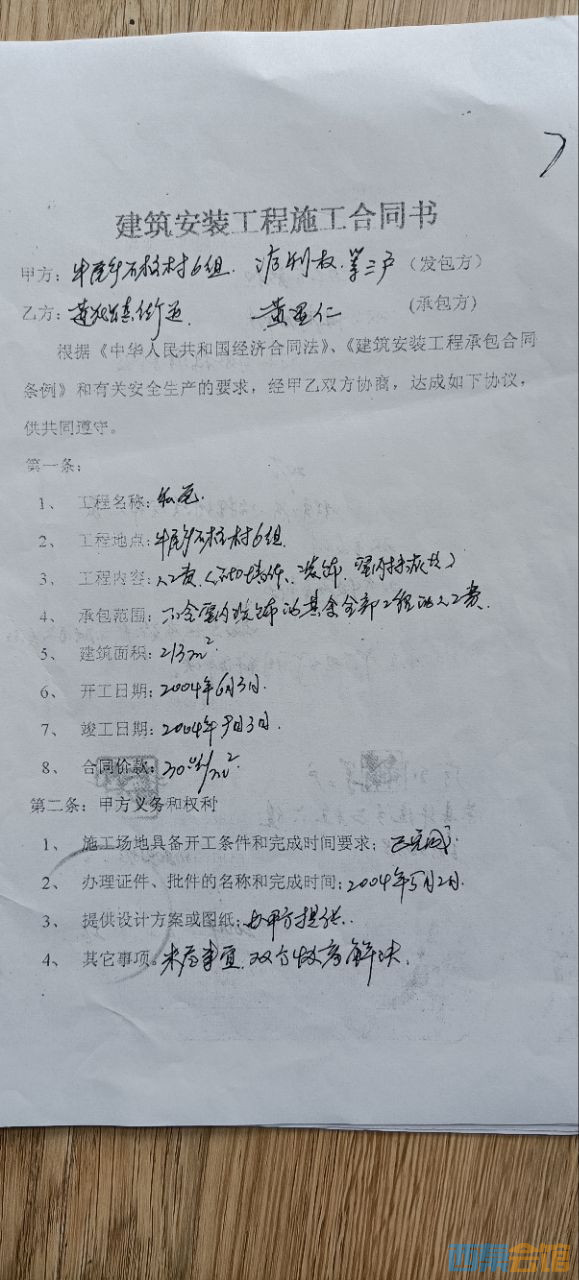 建筑安装工程施工合同书
甲方：石板村6组 （发包方）
乙方：街道 黄 仁 (承包方)
根据《中华人民共和国经济合同法》、《建筑安装工程承包合同
条例》和有关安全生产的要求，经甲乙双方协商，达成如下协议，
供共同遵守。
第一条：
1、 工程名称：
2、 工程地点：村6组
3、 工程内容：人工费
4、 承包范围：不含室内装饰的其余全部工程的人工费.
5、 建筑面积：213m²
6、 开工日期：2004年6月3日.
7、 竣工日期：2004年9月3日.
8、 合同价款：/m²
第二条：甲方义务和权利
1、 施工场地具备开工条件和完成时间要求：已完成
2、 办理证件、批件的名称和完成时间：2004年5月2日.
3、 提供设计方案或图纸：由甲方提供.
4、 其它事项。未尽事宜.双方协商解决.
西京会馆